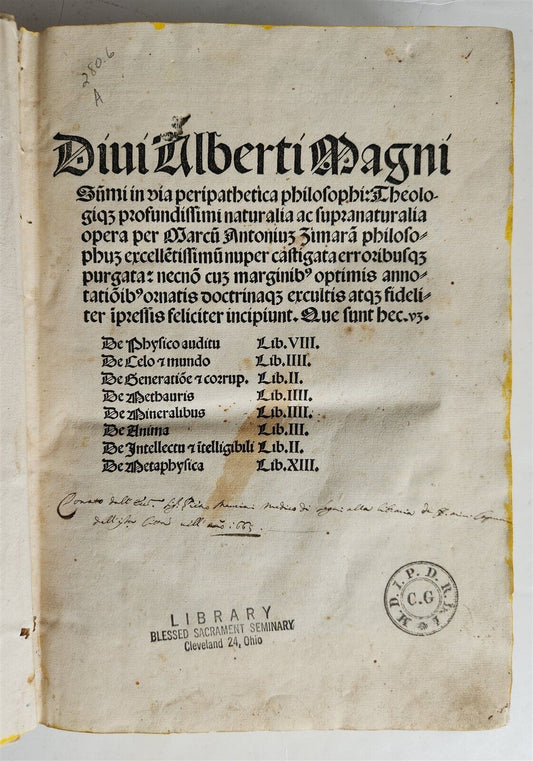 280.6
A
Diui Alberti Magni
Sūmi in via peripathetica philosophi: Theolo-
giqꝫ profundissimi naturalia ac supranaturalia
opera per Marcū Antoniuꝫ Zimarā philoso-
phuꝫ excellētissimū nuper castigata erroribusqꝫ
purgata: necnō cuꝫ marginibꝰ optimis anno-
tatiōibꝰ ornatis doctrinaqꝫ excultis atqꝫ fideli-
ter īpressis feliciter incipiunt. Que sunt hec. vꝫ.
De Physico auditu Lib. VIII.
De Celo ⁊ mundo Lib. IIII.
De Generatiōe ⁊ corrup. Lib. II.
De Methauris Lib. IIII.
De Mineralibus Lib. IIII.
De Anima Lib. III.
De Intellectu ⁊ ītelligibili Lib. II.
De Metaphysica Lib. XIII.
Medico di alla libraria
M. D. I. P. D. R. I.
C.G
LIBRARY
BLESSED SACRAMENT SEMINARY
Cleveland 24, Ohio